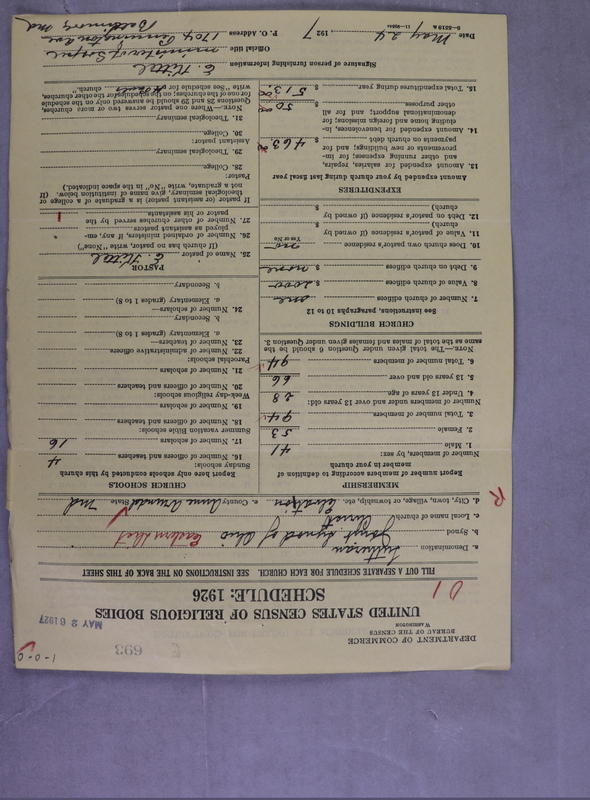 1-0-0
693 E
DEPARTMENT OF COMMERCE
BUREAU OF THE CENSUS
WASHINGTON
MAY 26 1927
UNITED STATES CENSUS OF RELIGIOUS BODIES
SCHEDULE: 1926
FILL OUT A SEPARATE SCHEDULE FOR EACH CHURCH. SEE INSTRUCTIONS ON THE BACK OF THIS SHEET
a. Denomination Lutheran
b. Synod Joint Synod of Ohio Eastern Dist
c. Local name of church Christ
d. City, town, village, or township, etc. e. County Anne Arundel State Md
MEMBERSHIP
Report number of members according to definition of
member in your church
Number of members, by sex:
1. Male 41
2. Female 53
3. Total number of members 94
Number of members under and over 13 years old:
4. Under 13 years of age 28
5. 13 years old and over 66
6. Total number of members 94
NOTE.—The total given under Question 6 should be the
same as the total of males and females given under Question 3.
CHURCH BUILDINGS
See instructions, paragraphs 10 to 12
7. Number of church edifices one
8. Value of church edifices $ 2000
9. Debt on church edifices $ none
10. Does church own pastor's residence no
Yes or No
11. Value of pastor's residence (if owned by
church) $
12. Debt on pastor's residence (if owned by
church) $
EXPENDITURES
Amount expended by your church during last fiscal year
13. Amount expended for salaries, repairs,
and other running expenses; for im-
provements or new buildings; and for
payments on church debt $ 463.00
14. Amount expended for benevolences, in-
cluding home and foreign missions; for
denominational support; and for all
other purposes $ 50.00
15. Total expenditures during year $ 513.00
CHURCH SCHOOLS
Report here only schools conducted by this church
Sunday schools:
16. Number of officers and teachers 4
17. Number of scholars 16
Summer vacation Bible schools:
18. Number of officers and teachers
19. Number of scholars
Week-day religious schools:
20. Number of officers and teachers
21. Number of scholars
Parochial schools:
22. Number of administrative officers
23. Number of teachers—
a. Elementary (grades 1 to 8)
b. Secondary
24. Number of scholars—
a. Elementary (grades 1 to 8)
b. Secondary
PASTOR
25. Name of pastor E. Kittel
(If church has no pastor, write "None")
26. Number of ordained ministers, if any, em-
ployed as assistant pastors
27. Number of other churches served by the
pastor or his assistants 1
If pastor (or assistant pastor) is a graduate of a college or
theological seminary, give name of institution below. (If
not a graduate, write "No" in the space indicated.)
Pastor:
28. College
29. Theological seminary
Assistant pastor:
30. College
31. Theological seminary
NOTE.—Where one pastor serves two or more churches,
Questions 28 and 29 should be answered only on the schedule
for one of the churches; on the schedules for the other churches,
write "See schedule for church."
Signature of person furnishing information E. Kittel
Official title minister of Gospel
P. O. Address 1704 Pennington Ave
Baltimore, Md
Date May 24, 1927
8-5519a 11—9084